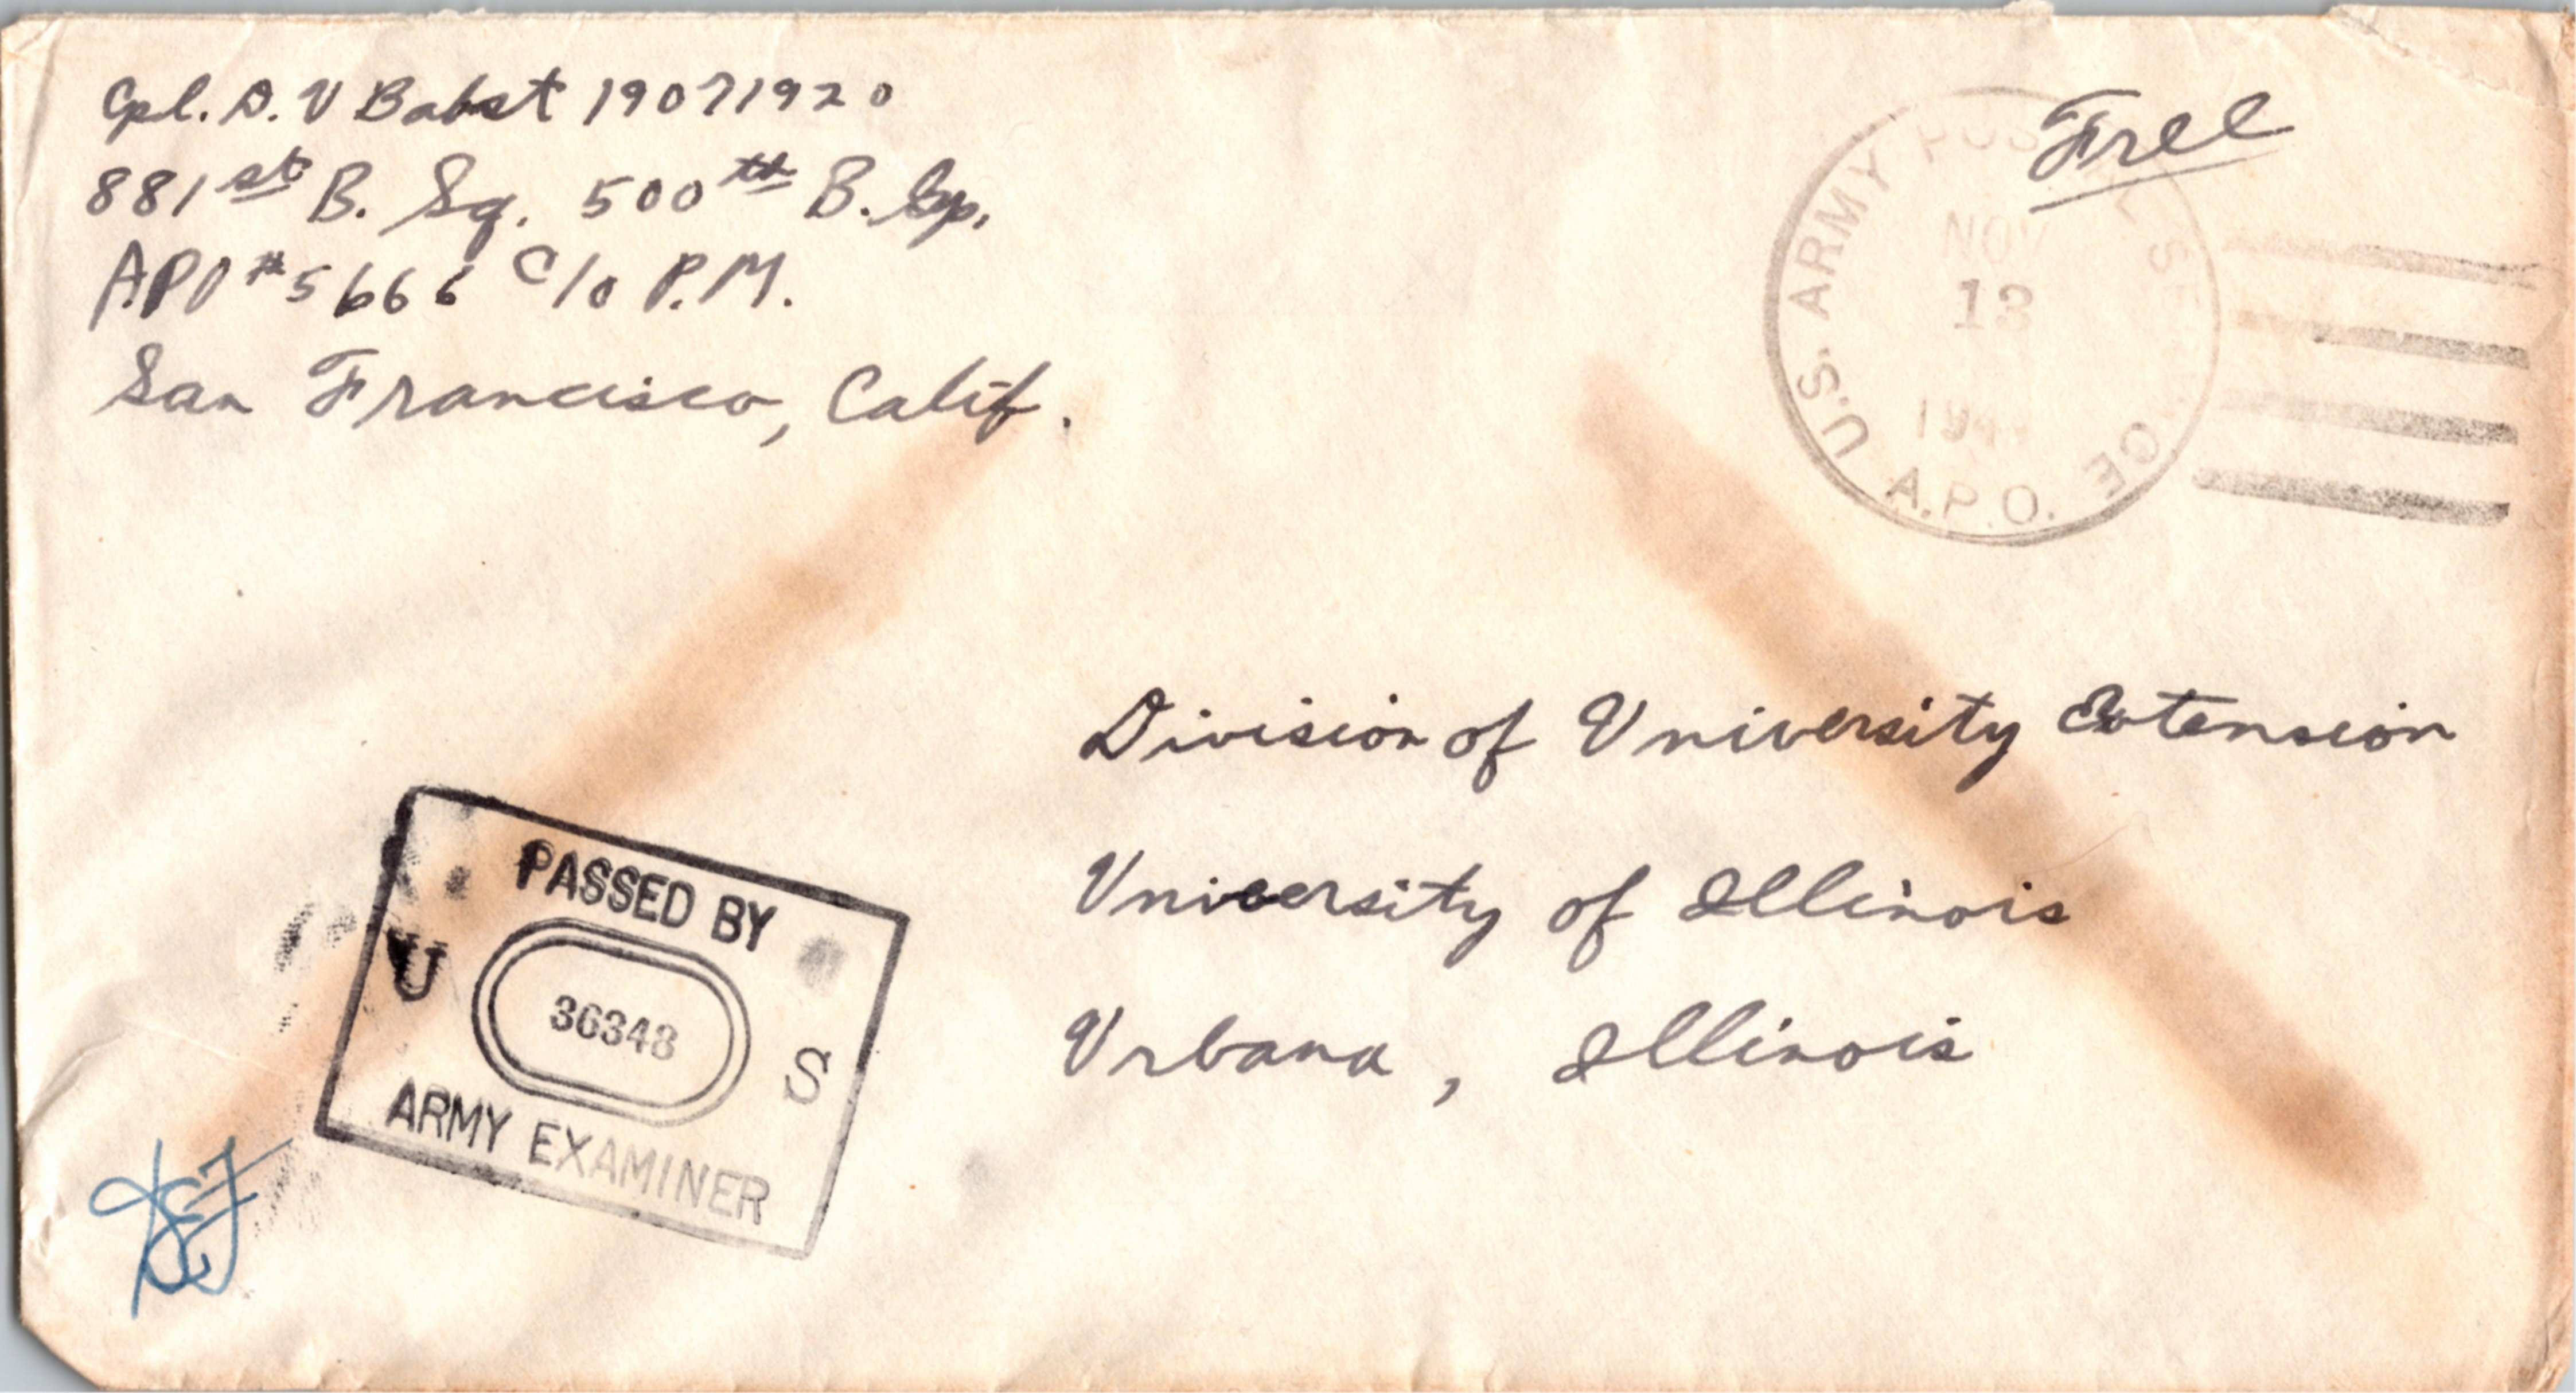 Cpl. D. V Babst 19071920
881st B. Sq. 500th B. Gp.
APO #5666 c/o P.M.
San Francisco, Calif.
Free
U.S. ARMY POSTAL SERVICE
NOV
13
A.P.O.
Division of University Extension
University of Illinois
Urbana, Illinois
PASSED BY
U S
36348
ARMY EXAMINER